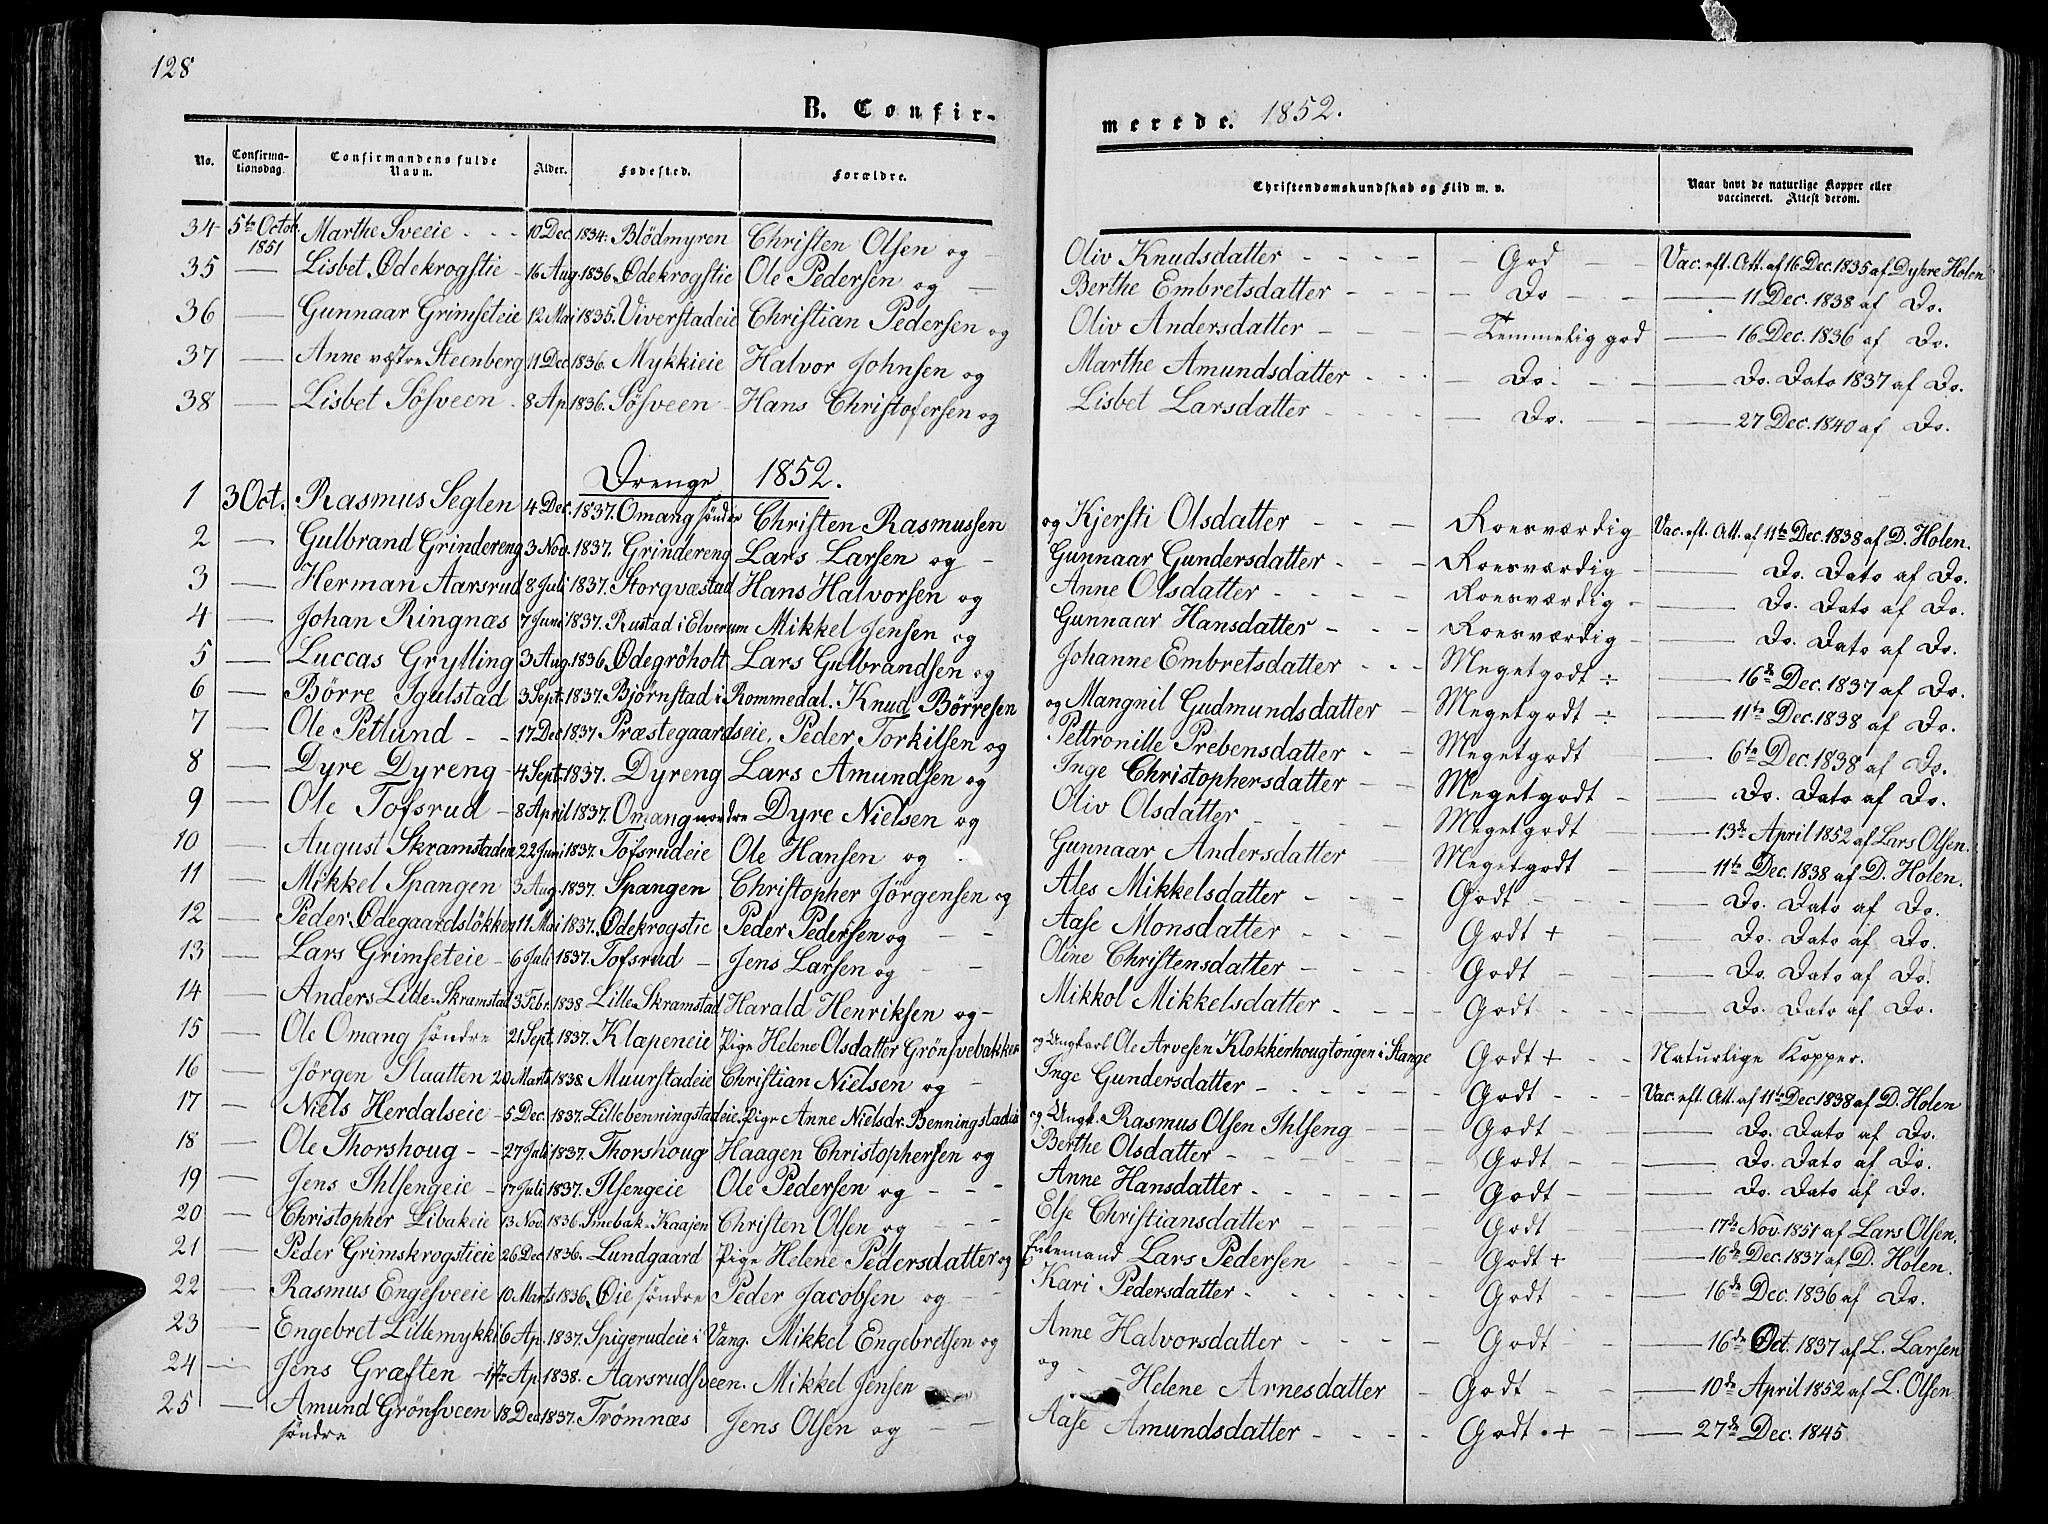 128
B. Confirmerede. 1852.
No. Confirmationsdag. Confirmandens fulde Navn. Alder. Fødested. Forældre. Christendomskundskab og Flid m. v. Naar havt de naturlige Kopper eller vaccineret. Attest derom.
34 5te Octob. 1851 Marthe Sveeie - - - 10 Dec 1834. Blödmyren Christen Olsen og - Oliv Knudsdatter - - - - God - - Vac. eft. Att. af 16 Dec. 1835 af Dyhre Holen
35 — Lisbet Ødekrogstie - 16 Aug. 1836. Ødekrogstie Ole Pedersen og — Berthe Embretsdatter - - - - Do - - — 11 Dec. 1838 af Do.
36 — Gunnaar Grimseteie 12 Mai 1835. Viverstadeie Christian Pedersen og Oliv Andersdatter - - - - Temmelig god — 16 Dec. 1836 af Do.
37 — Anne væstre Steenberg 11 Dec 1836. Mykkieie Halvor Johnsen og Marthe Amundsdatter - - - - Do. - - — Do. Dato 1837 af Do.
38 — Lisbet Sösveen - 8 Ap 1836. Sösveen - Hans Christofersen og Lisbet Larsdatter - - - - Do. - - — 27 Dec. 1840 af Do.
Drenge 1852.
1 3 Oct. Rasmus Seglen 4 Dec. 1837. Omang söndre Christen Rasmussen og Kjersti Olsdatter - - - Roesværdig Vac. eft. Att. af 11te Dec. 1838 af D. Holen.
2 — Gulbrand Grindereng 3 Nov. 1837. Grindereng Lars Larsen og - Gunnaar Gundersdatter - - - Roesværdig - — Do. Dato af Do.
3 — Herman Aarsrud 8 Juli 1837. Storqvæstad Hans Halvorsen og Anne Olsdatter - - - - Roesværdig - — Do. Dato af Do.
4 — Johan Ringnæs 7 Juni 1837. Rustad i Elverum Mikkel Jensen og Gunnaar Hansdatter - - - Roesværdig - — Do. Dato af Do.
5 — Luccas Grytling 3 Aug. 1836 Ødegröholt Lars Gulbrandsen og Johanne Embretsdatter - - - Megetgodt ÷ — 16de Dec. 1837 af Do.
6 — Börre Igulstad 3 Sept. 1837. Bjørnstad i Rommedal. Knud Börresen og Mangnil Gudmundsdatter - Megetgodt ÷ — 11te Dec. 1838 af Do.
7 — Ole Petlund - - 17 Dec 1837 Præstegaardseie, Peder Torkilsen og Pettronille Prebensdatter - - Megetgodt — 6te Dec. 1838 af Do.
8 — Dyre Dyreng - 4 Sept. 1837. Dyreng Lars Amundsen og Inge Christophersdatter - - Megetgodt - — Do. Dato af Do.
9 — Ole Tofsrud - 8 April 1837. Omang nordre Dyre Nielsen og Oliv Olsdatter - - - Megetgodt - — 13de April 1852 af Lars Olsen.
10 — August Skramstadeie 22 Juni 1837. Tofsrudeie Ole Hansen og - Gunnaar Andersdatter - Megetgodt - — 11te Dec. 1838 af D. Holen.
11 — Mikkel Spangen 3 Aug. 1837. Spangen Christopher Jörgensen og Ales Mikkelsdatter - - - Godt - - - — Do. Dato af Do.
12 — Peder Ødegaardslökken 11 Mai 1837. Ødekrogstie Peder Pedersen og - - Aase Monsdatter - - - Godt + - — Do. Dato af Do.
13 — Lars Grimseteie - 6 Juli 1837. Tofsrud - Jens Larsen og - - Oline Christensdatter - - - - Godt - - — Do. Dato af Do.
14 — Anders Lille-Skramstad 3 Febr. 1838 Lille-Skramstad Harald Henriksen og - Mikkol Mikkelsdatter - - - - Godt - - - — Do. Dato af Do.
15 — Ole Omang söndre 21 Sept. 1837. Klæpeneie Pige Helene Olsdatter Grönsvebakken og Ungkarl Ole Arvesen Klokkerhougtongen i Stange Godt + - - Naturlige Kopper.
16 — Jörgen Slaatten 20 Marts 1838. Muurstadeie Christian Nielsen og - Inge Gundersdatter - - - - - Godt - - - Vac. eft. Att. af 11te Dec. 1838 af D. Holen
17 — Niels Herdalseie - 5 Dec. 1837. Lillebenningstadeie. Pige Anne Nielsdr. Benningstadeie og Ungk. Rasmus Olsen Ihlseng - - - Godt — Do. Dato af Do.
18 — Ole Thorshoug - - 27 Juli 1837. Thorshoug Haagen Christophersen og Berthe Olsdatter - - - - - - Godt - - — Do. Dato af Do.
19 — Jens Ihlsengeie - 17 Juli 1837. Ilsengeie Ole Pedersen og - - - Anne Hansdatter - - - - - - Godt - - — Do. Dato af Do.
20 — Christopher Libakeie 13 Nov 1836. Smebak-Kaajen Christen Olsen og - - - Else Christiansdatter - - - - Godt - - — 17de Nov. 1851 af Lars Olsen.
21 — Peder Grimskrogstieie 26 Dec 1836. Lundgaard Pige Helene Pedersdatter og Enkemand Lars Pedersen - - - Godt + — 16de Dec. 1837 af D. Holen.
22 — Rasmus Engesveeie 10 Marts 1836. Øie söndre Peder Jacobsen og - - Kari Pedersdatter - - - - - Godt - - — 16de Dec. 1836 af Do.
23 — Engebret Lillemykki 6 Ap. 1837. Spigerudeie i Vang. Mikkel Engebretsen og Anne Halvorsdatter - - - - Godt - — 16de Oct. 1837 af L. Larsen
24 — Jens Græften - 17 Ap. 1838. Aarsrudsveen. Mikkel Jensen og - Helene Arnesdatter - Godt - - — 10de April 1852 af L. Olsen
25 — Amund Grönsveen söndre 18 Dec 1837. Trömnæs Jens Olsen og - - Aase Amundsdatter - - - - Godt. + - — 27de Dec. 1845